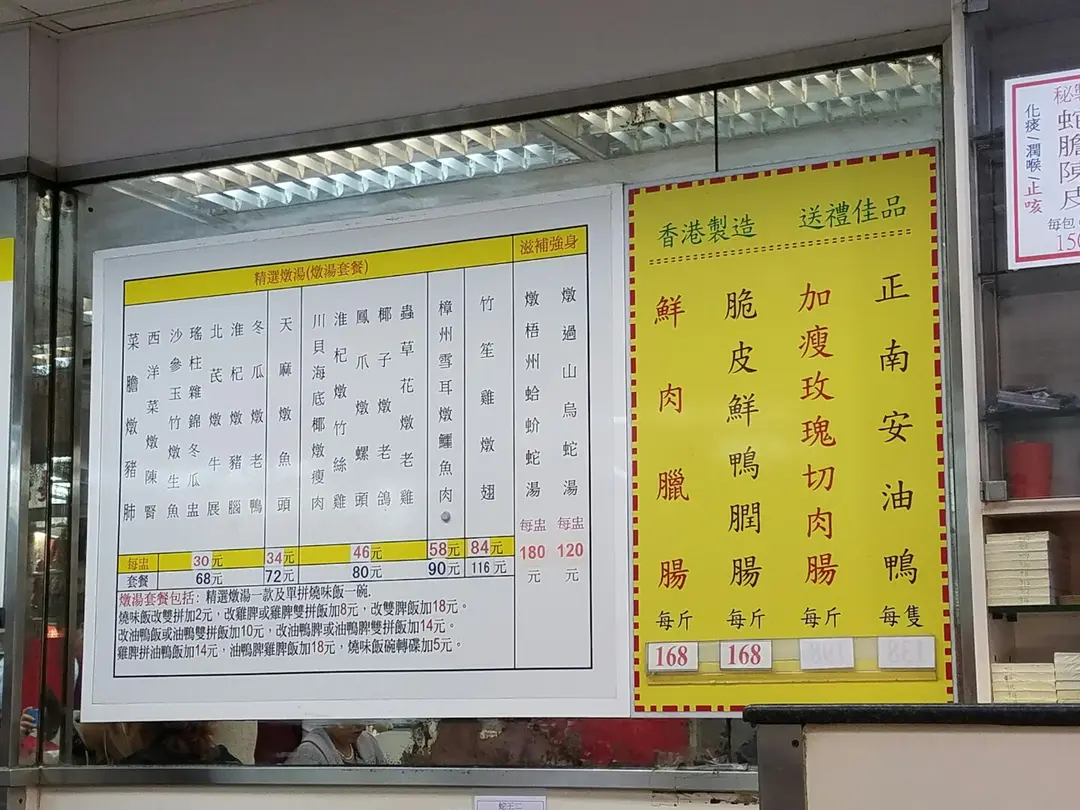 精選燉湯(燉湯套餐)
滋補強身
燉過山烏蛇湯
每盅
120
元
燉梧州蛤蚧蛇湯
每盅
180
元
竹笙雞燉翅
樟州雪耳燉鱷魚肉
蟲草花燉老雞
椰子燉老鴿
鳳爪燉螺頭
淮杞燉竹絲雞
川貝海底椰燉瘦肉
天麻燉魚頭
冬瓜燉老鴨
淮杞燉豬腦
北芪燉牛展
瑤柱雜錦冬瓜盅
沙參玉竹燉生魚
西洋菜燉陳腎
菜膽燉豬肺
每盅 30元 34元 46元 58元 84元
套餐 68元 72元 80元 90元 116元
燉湯套餐包括: 精選燉湯一款及單拼燒味飯一碗.
燒味飯改雙拼加2元，改雞脾或雞脾雙拼飯加8元，改雙脾飯加18元。
改油鴨飯或油鴨雙拼飯加10元，改油鴨脾或油鴨脾雙拼飯加14元。
雞脾拼油鴨飯加14元，油鴨脾雞脾飯加18元，燒味飯碗轉碟加5元。
香港製造 送禮佳品
正南安油鴨
每隻
加瘦玫瑰切肉腸
每斤
脆皮鮮鴨膶腸
每斤
168
鮮肉臘腸
每斤
168
蛇膽陳皮
化痰/潤喉/止咳
每包